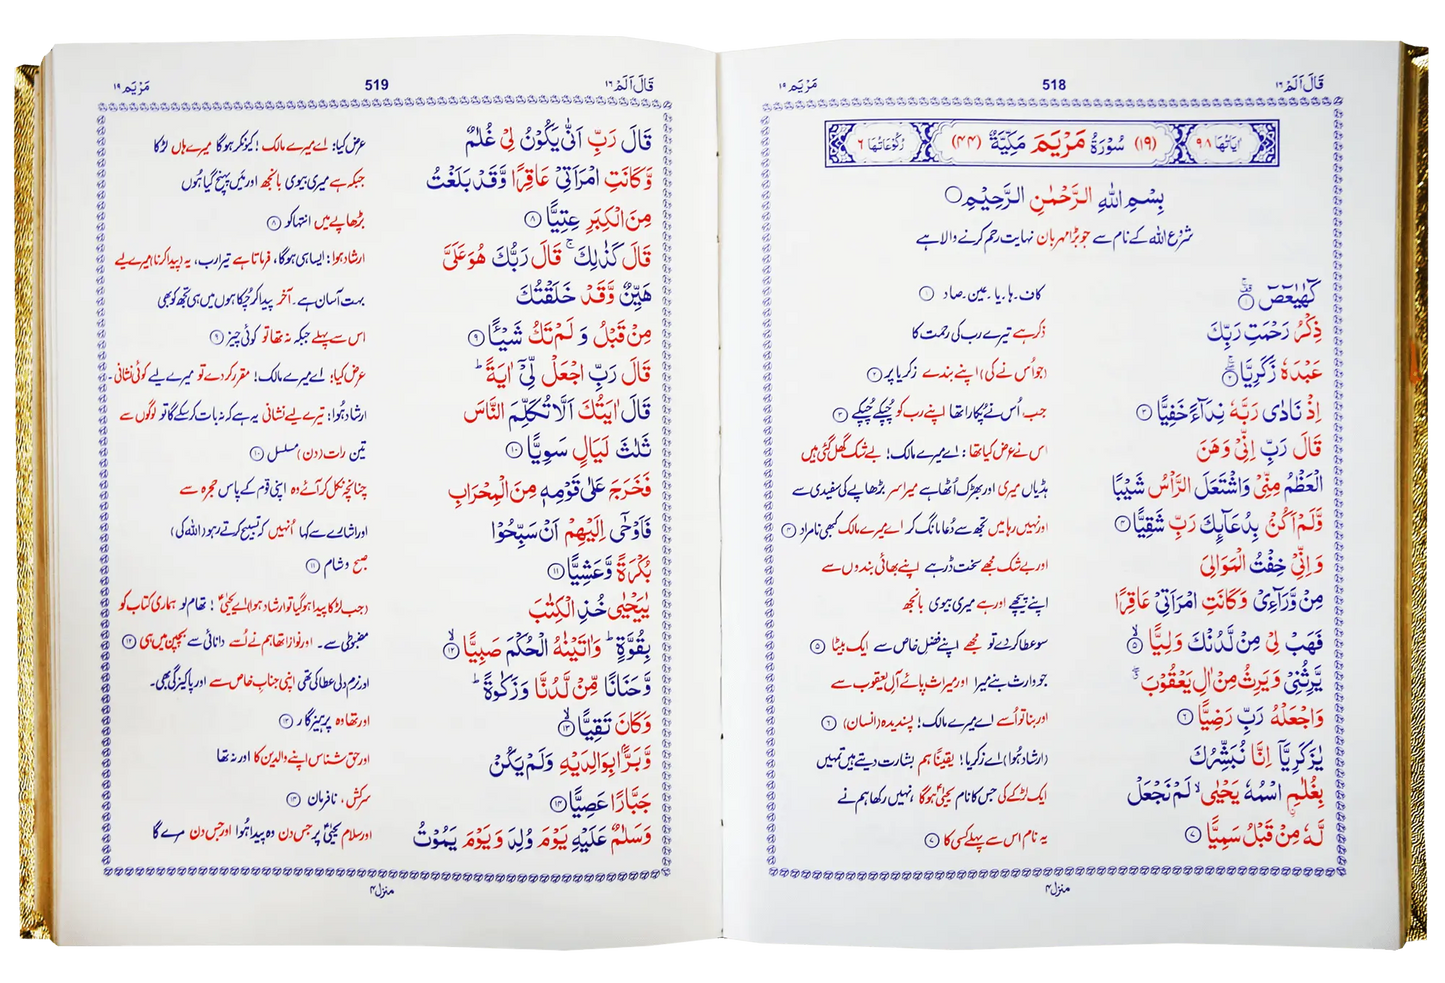 قَالَ اَلَمْ ١٦ 518 مَرْيَم ١٩
اٰيَاتُهَا ٩٨ (١٩) سُوْرَةُ مَرْيَمَ مَكِّيَّةٌ (٤٤) رُكُوْعَاتُهَا ٦
بِسْمِ اللّٰهِ الرَّحْمٰنِ الرَّحِيْمِ
شروع اللہ کے نام سے جو بڑا مہربان نہایت رحم کرنے والا ہے
كٓهٰيٰعٓصٓ ١ کاف۔ ہا۔ یا۔ عین۔ صاد ١
ذِكْرُ رَحْمَتِ رَبِّكَ ذکر ہے تیرے رب کی رحمت کا
عَبْدَهٗ زَكَرِيَّا ٢ (جو اُس نے کی) اپنے بندے زکریا پر ٢
اِذْ نَادٰى رَبَّهٗ نِدَآءً خَفِيًّا ٣ جب اُس نے پکارا تھا اپنے رب کو چُپکے چُپکے ٣
قَالَ رَبِّ اِنِّىْ وَهَنَ اس نے عرض کیا تھا: اے میرے مالک! بے شک گھل گئی ہیں
الْعَظْمُ مِنِّىْ وَاشْتَعَلَ الرَّاْسُ شَيْبًا ہڈیاں میری اور بھڑک اُٹھا ہے میرا سر بڑھاپے کی سفیدی سے
وَّلَمْ اَكُنْۢ بِدُعَآئِكَ رَبِّ شَقِيًّا ٤ اور نہیں رہا میں تجھ سے دُعا مانگ کر اے میرے مالک کبھی نامراد ٤
وَاِنِّىْ خِفْتُ الْمَوَالِىَ اور بے شک مجھے سخت ڈر ہے اپنے بھائی بندوں سے
مِنْ وَّرَآءِىْ وَكَانَتِ امْرَاَتِىْ عَاقِرًا اپنے پیچھے اور ہے میری بیوی بانجھ
فَهَبْ لِىْ مِنْ لَّدُنْكَ وَلِيًّا ٥ سو عطا کر دے تُو مجھے اپنے فضل خاص سے ایک بیٹا ٥
يَّرِثُنِىْ وَيَرِثُ مِنْ اٰلِ يَعْقُوْبَ جو وارث بنے میرا اور میراث پائے آلِ یعقوب سے
وَاجْعَلْهُ رَبِّ رَضِيًّا ٦ اور بنا تُو اُسے اے میرے مالک! پسندیدہ (انسان) ٦
يٰزَكَرِيَّآ اِنَّا نُبَشِّرُكَ (ارشاد ہُوا) اے زکریا! یقیناً ہم بشارت دیتے ہیں تمہیں
بِغُلٰمِ اسْمُهٗ يَحْيٰى لَمْ نَجْعَلْ ایک لڑکے کی جس کا نام یحییٰ ہوگا، نہیں رکھا ہم نے
لَّهٗ مِنْ قَبْلُ سَمِيًّا ٧ یہ نام اس سے پہلے کسی کا ٧
منزل ٤
قَالَ اَلَمْ ١٦ 519 مَرْيَم ١٩
قَالَ رَبِّ اَنّٰى يَكُوْنُ لِىْ غُلٰمٌ عرض کیا: اے میرے مالک! کیونکر ہوگا میرے ہاں لڑکا
وَّكَانَتِ امْرَاَتِىْ عَاقِرًا وَّقَدْ بَلَغْتُ جبکہ ہے میری بیوی بانجھ اور میں پہنچ گیا ہُوں
مِنَ الْكِبَرِ عِتِيًّا ٨ بڑھاپے میں انتہا کو ٨
قَالَ كَذٰلِكَ ۚ قَالَ رَبُّكَ هُوَ عَلَىَّ ارشاد ہوا: ایسا ہی ہوگا، فرماتا ہے تیرا رب، یہ (پیدا کرنا) میرے لیے
هَيِّنٌ وَّقَدْ خَلَقْتُكَ بہت آسان ہے۔ آخر پیدا کر چُکا ہوں میں ہی تجھ کو بھی
مِنْ قَبْلُ وَلَمْ تَكُ شَيْـًٔا ٩ اس سے پہلے جبکہ نہ تھا تو کوئی چیز ٩
قَالَ رَبِّ اجْعَلْ لِّىْٓ اٰيَةً ؕ عرض کیا: اے میرے مالک! مقرر کر دے تو میرے لیے کوئی نشانی۔
قَالَ اٰيَتُكَ اَلَّا تُكَلِّمَ النَّاسَ ارشاد ہُوا: تیرے لیے نشانی یہ ہے کہ نہ بات کر سکے گا تو لوگوں سے
ثَلٰثَ لَيَالٍ سَوِيًّا ١٠ تین رات (دن) مسلسل ١٠
فَخَرَجَ عَلٰى قَوْمِهٖ مِنَ الْمِحْرَابِ چنانچہ نکل کر آئے وہ اپنی قوم کے پاس حجرہ سے
فَاَوْحٰٓى اِلَيْهِمْ اَنْ سَبِّحُوْا اور اشارے سے کہا اُنہیں کہ تسبیح کرتے رہو (اللہ کی)
بُكْرَةً وَّعَشِيًّا ١١ صبح و شام ١١
يٰيَحْيٰى خُذِ الْكِتٰبَ (جب لڑکا پیدا ہوگیا تو ارشاد ہوا) اے یحییٰ! تھام لو ہماری کتاب کو
بِقُوَّةٍ ؕ وَاٰتَيْنٰهُ الْحُكْمَ صَبِيًّا ١٢ مضبوطی سے۔ اور نوازا تھا ہم نے اُسے دانائی سے بچپن میں ہی ١٢
وَّحَنَانًا مِّنْ لَّدُنَّا وَزَكٰوةً ؕ اور نرم دلی عطا کی تھی اپنی جنابِ خاص سے اور پاکیزگی بھی۔
وَكَانَ تَقِيًّا ١٣ اور تھا وہ پرہیزگار ١٣
وَّبَرًّۢا بِوَالِدَيْهِ وَلَمْ يَكُنْ اور حق شناس اپنے والدین کا اور نہ تھا
جَبَّارًا عَصِيًّا ١٤ سرکش، نافرمان ١٤
وَسَلٰمٌ عَلَيْهِ يَوْمَ وُلِدَ وَيَوْمَ يَمُوْتُ اور سلام یحییٰ پر جس دن وہ پیدا ہُوا اور جس دن مرے گا
منزل ٤